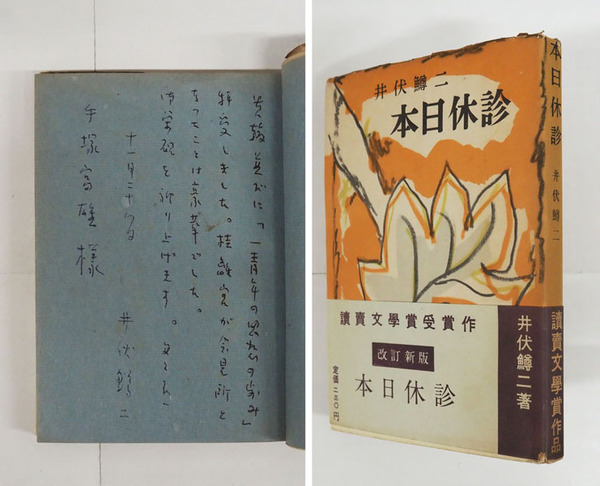 貴翰並びに「一青年の思想の歩み」
拝受しました。桂離宮が会見所と
なったことは
御栄硯を祈り上げます。
十一月二十
井伏鱒二
手塚富雄様
井伏鱒二
本日休診
讀賣文學賞受賞作
改訂新版
本日休診
定価二五〇円
井伏鱒二著
本日休診 井伏鱒二
讀賣文學賞作品